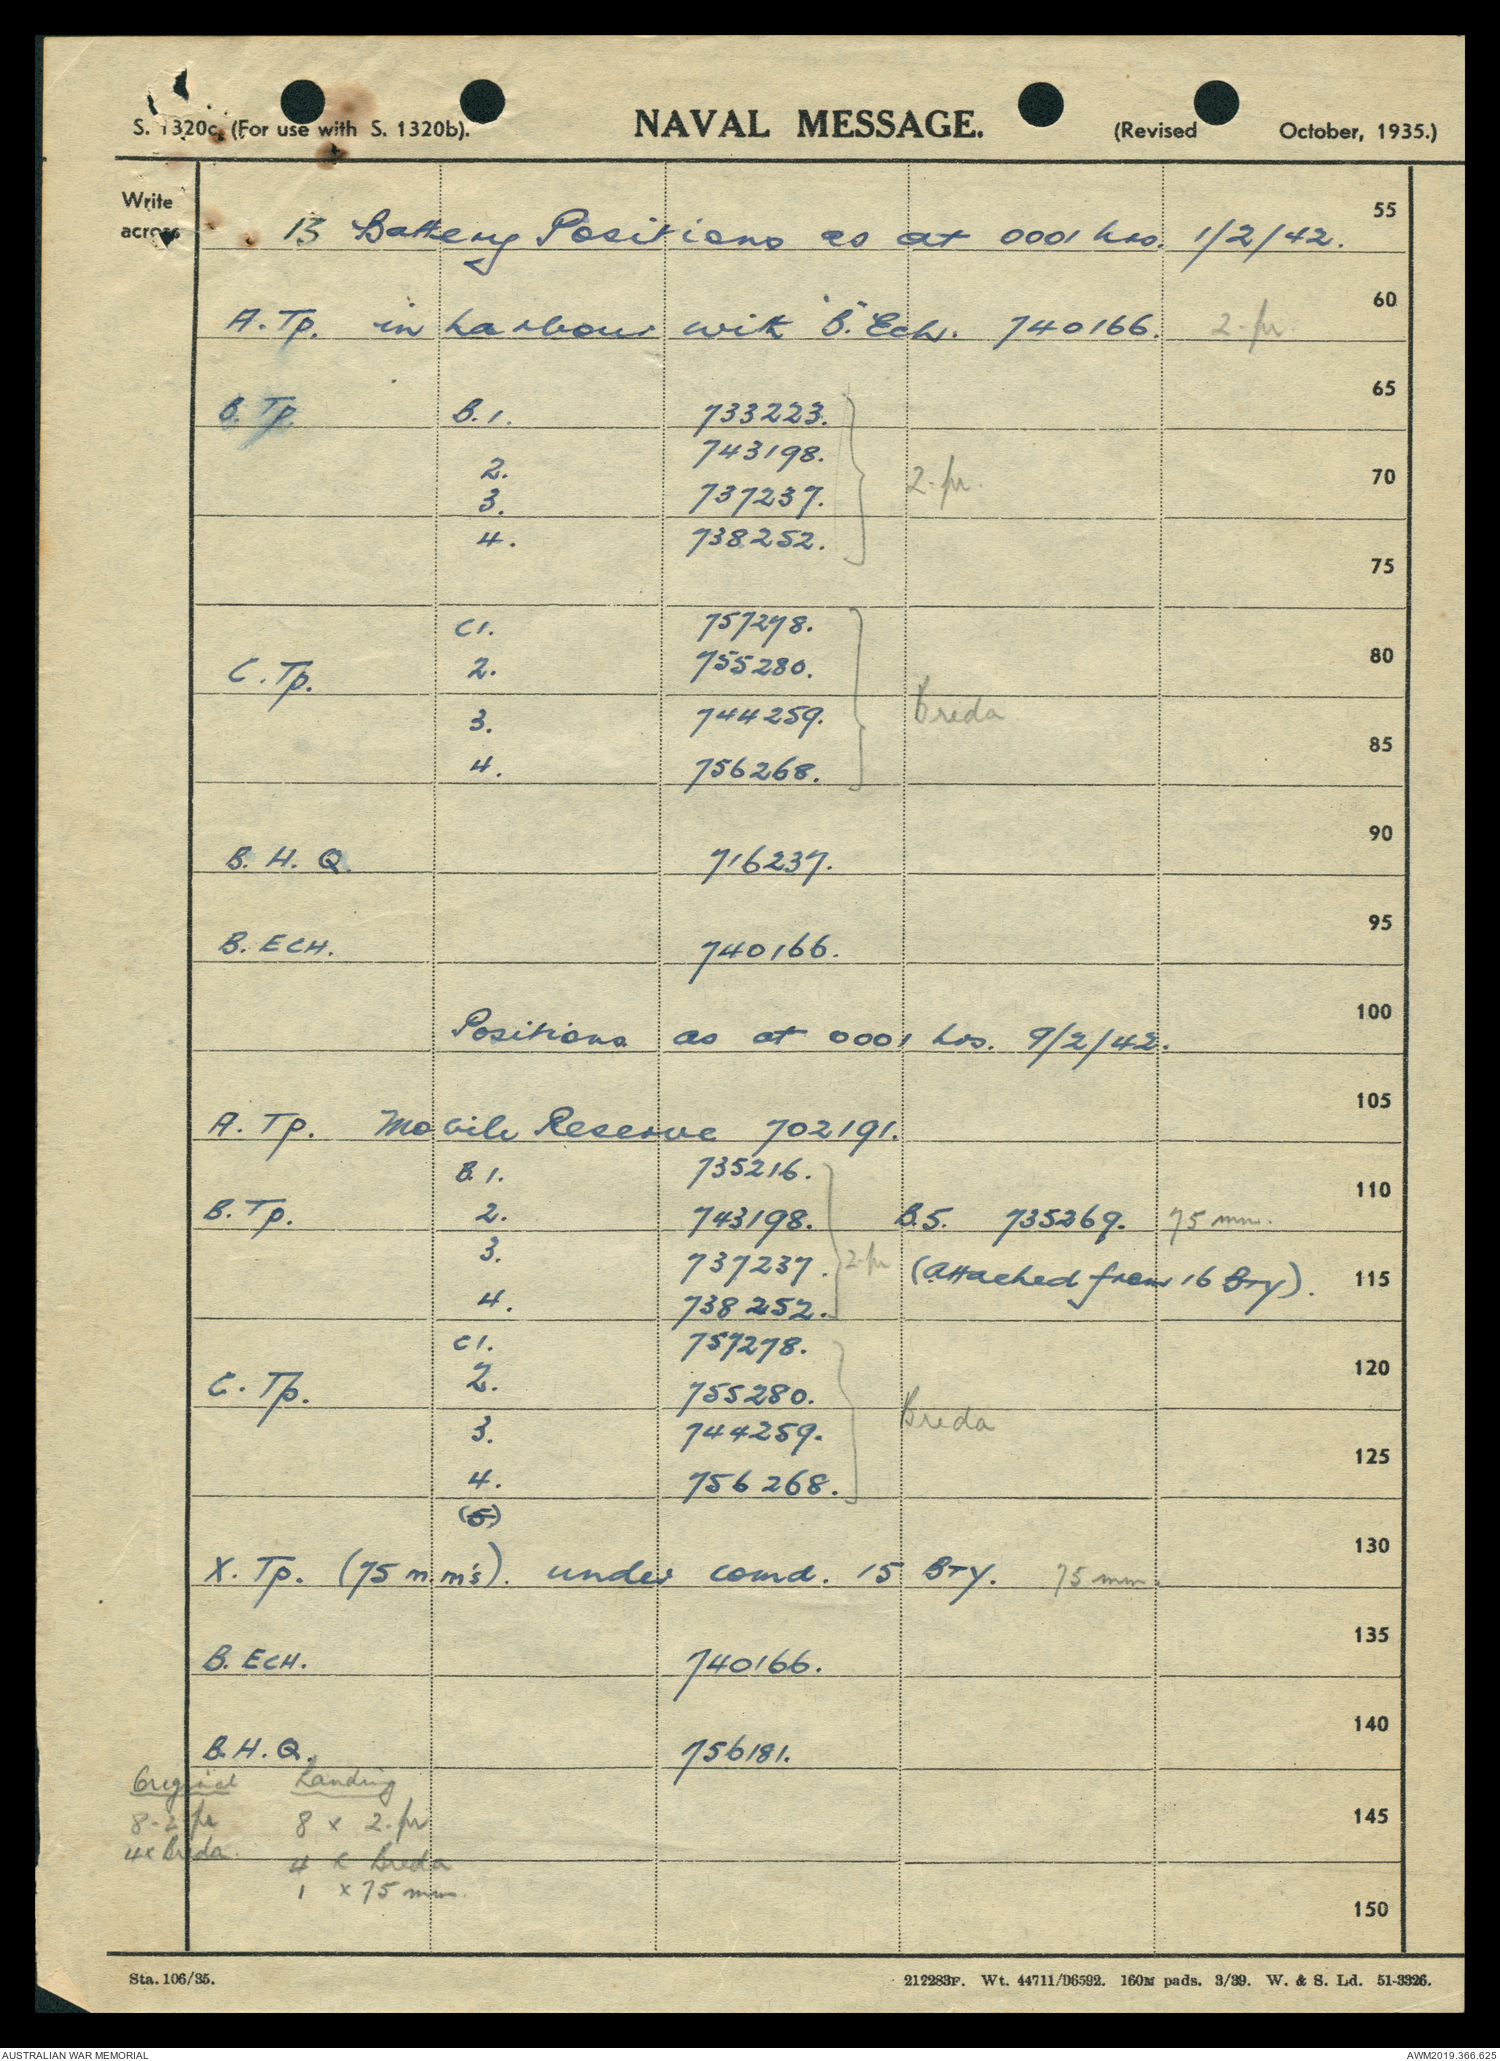 S. 1320c. (For use with S. 1320b).
NAVAL MESSAGE.
(Revised October, 1935.)
Write
across
55
13 Battery Positions as at 0001 hrs. 1/2/42.
60
A.Tp. in harbour with "B" Ech. 740166. 2-pr.
65
B. Tp. B.1. 733223.
2. 743198.
2-pr. 70
3. 737237.
4. 738252.
75
C1. 757278.
C. Tp. 2. 755280. 80
3. 744259. Breda
85
4. 756268.
90
B. H. Q. 716237.
95
B. ECH. 740166.
100
Positions as at 0001 hrs. 9/2/42.
105
A. Tp. Mobile Reserve 702191.
B.1. 735216.
110
B. Tp. 2. 743198. B.5. 735269. 75 mm.
3. 737237. 2-pr (attached from 16 Bty). 115
4. 738252.
C1. 757278.
120
C. Tp. 2. 755280.
3. 744259. Breda
125
4. 756268.
(5)
130
X. Tp. (75 m.m's). under comd. 15 BTY. 75 mm.
135
B. ECH. 740166.
140
B.H.Q. 756181.
Original Landing
8-2 pr 8 x 2-pr 145
4x Breda. 4 x Breda
1 x 75 mm.
150
Sta. 106/35.
212283F. Wt. 44711/D6592. 160M pads. 3/39. W. & S. Ld. 51-3326.
AUSTRALIAN WAR MEMORIAL
AWM2019.366.625